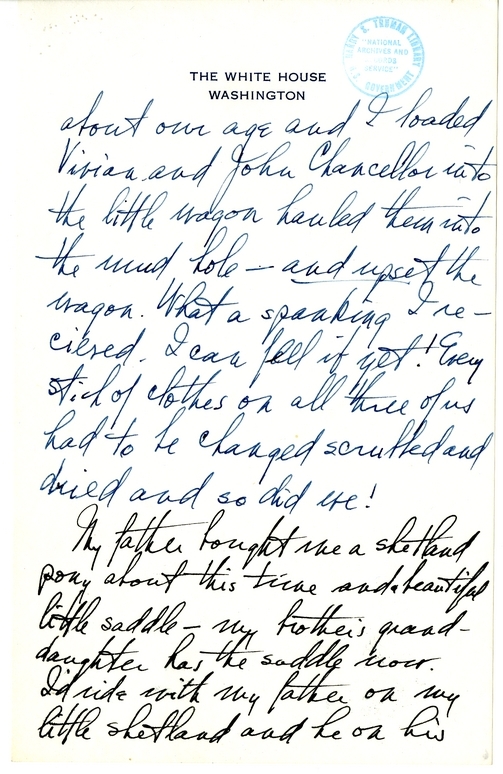 THE WHITE HOUSE
WASHINGTON
HARRY S. TRUMAN LIBRARY
"NATIONAL
ARCHIVES AND
RECORDS
SERVICE"
U.S. GOVERNMENT
about our age and I loaded
Vivian and John Chancellor into
the little wagon hauled them into
the mud hole – and upset the
wagon. What a spanking I re-
cieved. I can feel it yet! Every
stich of clothes on all three of us
had to be changed scrubbed and
dried and so did we!
My father bought me a shetland
pony about this time and a beautiful
little saddle – my brother's grand-
daughter has the saddle now.
I'd ride with my father on my
little shetland and he on his